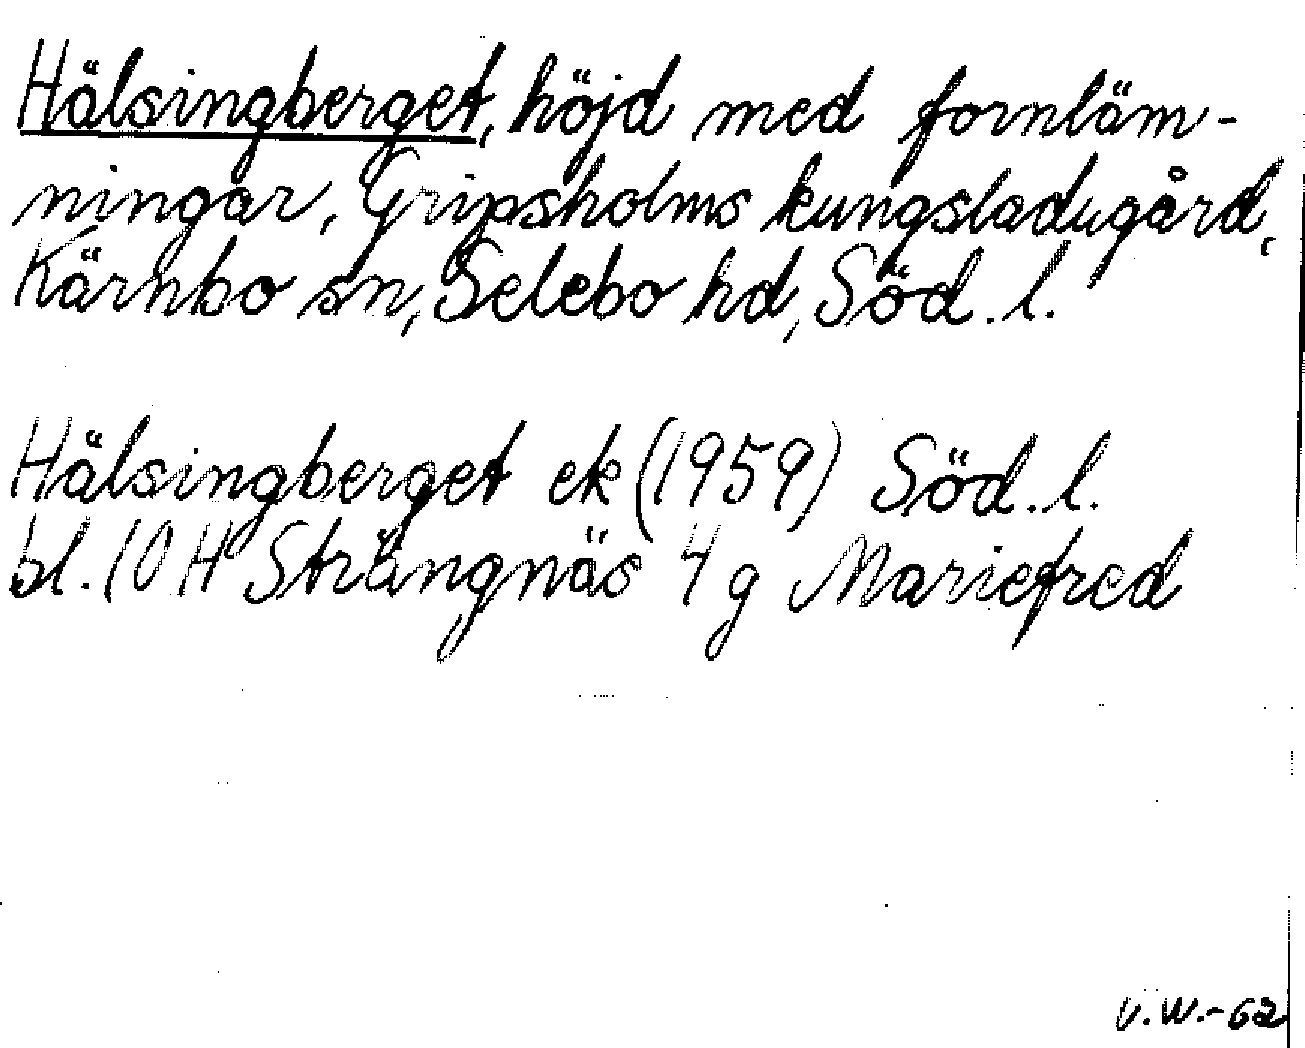 Hälsingberget, höjd med fornläm-
ningar, Gripsholms kungsladugård,
Kärnbo sn, Selebo hd, Söd. l.
Hälsingberget ek (1959) Söd. l.
bl. 10 H Strängnäs 4 g Mariefred
V.W.-62